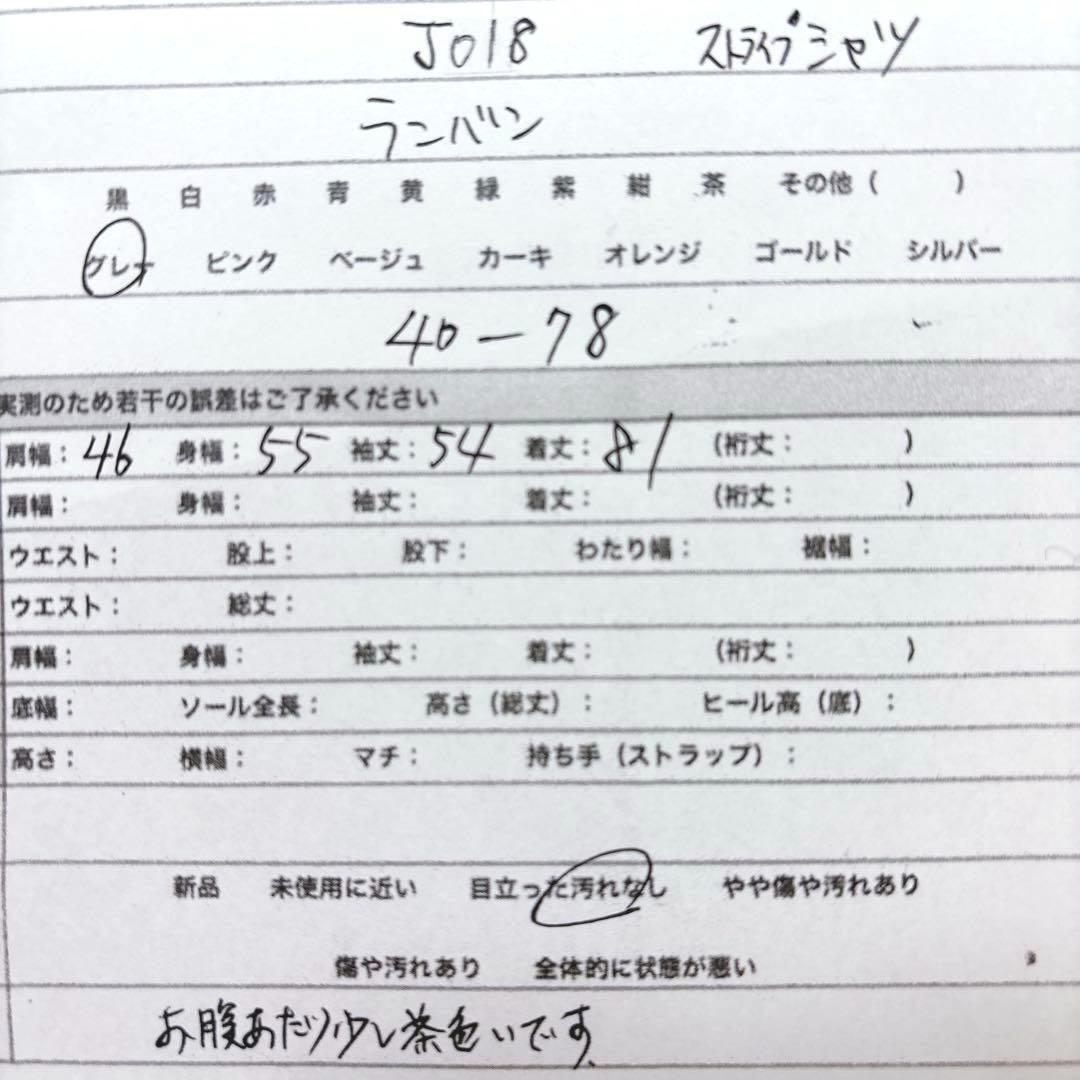 J018 ストライプシャツ
ランバン
黒 白 赤 青 黄 緑 紫 紺 茶 その他( )
グレー ピンク ベージュ カーキ オレンジ ゴールド シルバー
40-78
実測のため若干の誤差はご了承ください
肩幅:46 身幅:55 袖丈:54 着丈:81 (裄丈: )
肩幅: 身幅: 袖丈: 着丈: (裄丈: )
ウエスト: 股上: 股下: わたり幅: 裾幅:
ウエスト: 総丈:
肩幅: 身幅: 袖丈: 着丈: (裄丈: )
底幅: ソール全長: 高さ(総丈): ヒール高(底):
高さ: 横幅: マチ: 持ち手(ストラップ):
新品 未使用に近い 目立った汚れなし やや傷や汚れあり
傷や汚れあり 全体的に状態が悪い
お腹あたり少し茶色いです